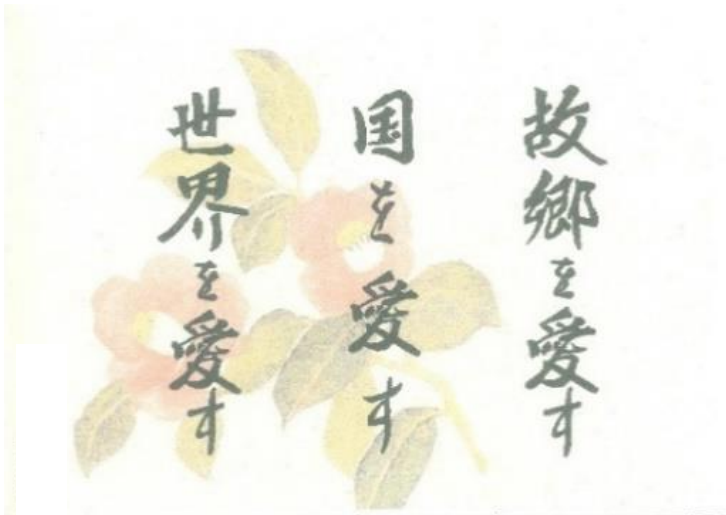 故郷を愛す
国を愛す
世界を愛す